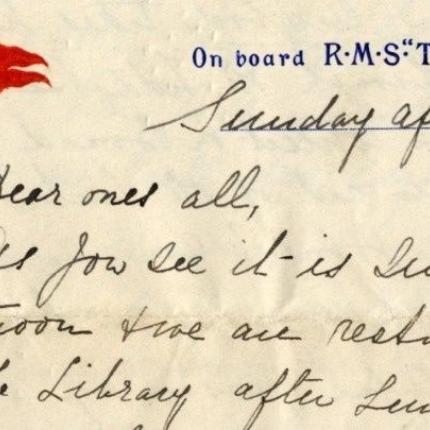 On board R·M·S·"T
Sunday af
Dear ones all,
As you see it is Su
noon & we are rest
Library after Lun